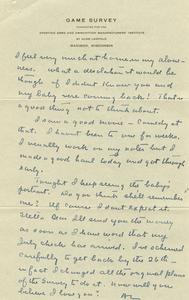 GAME SURVEY
CONDUCTED FOR THE
SPORTING ARMS AND AMMUNITION MANUFACTURERS' INSTITUTE
BY ALDO LEOPOLD
MADISON, WISCONSIN
I feel very much at home in my alone-
ness. What a desolation it would be
though if I didn't know you and
my baby were coming back! That is
a good thing not to think about.
I saw a good movie — Comedy at
that. I haven't been to one for weeks,
I usually work on my notes but I
made a good haul today and got through
early.
Tonight I keep seeing the baby's
portrait. Do you think she'll remember
me? Of course I don't expect it.
Hello Dear I'll send you the money
as soon as I have word that my
July check has arrived. I've schemed
carefully to get back by the 26th —
in fact I changed all the original plans
of the Survey to do it. Now will you
believe I love you?